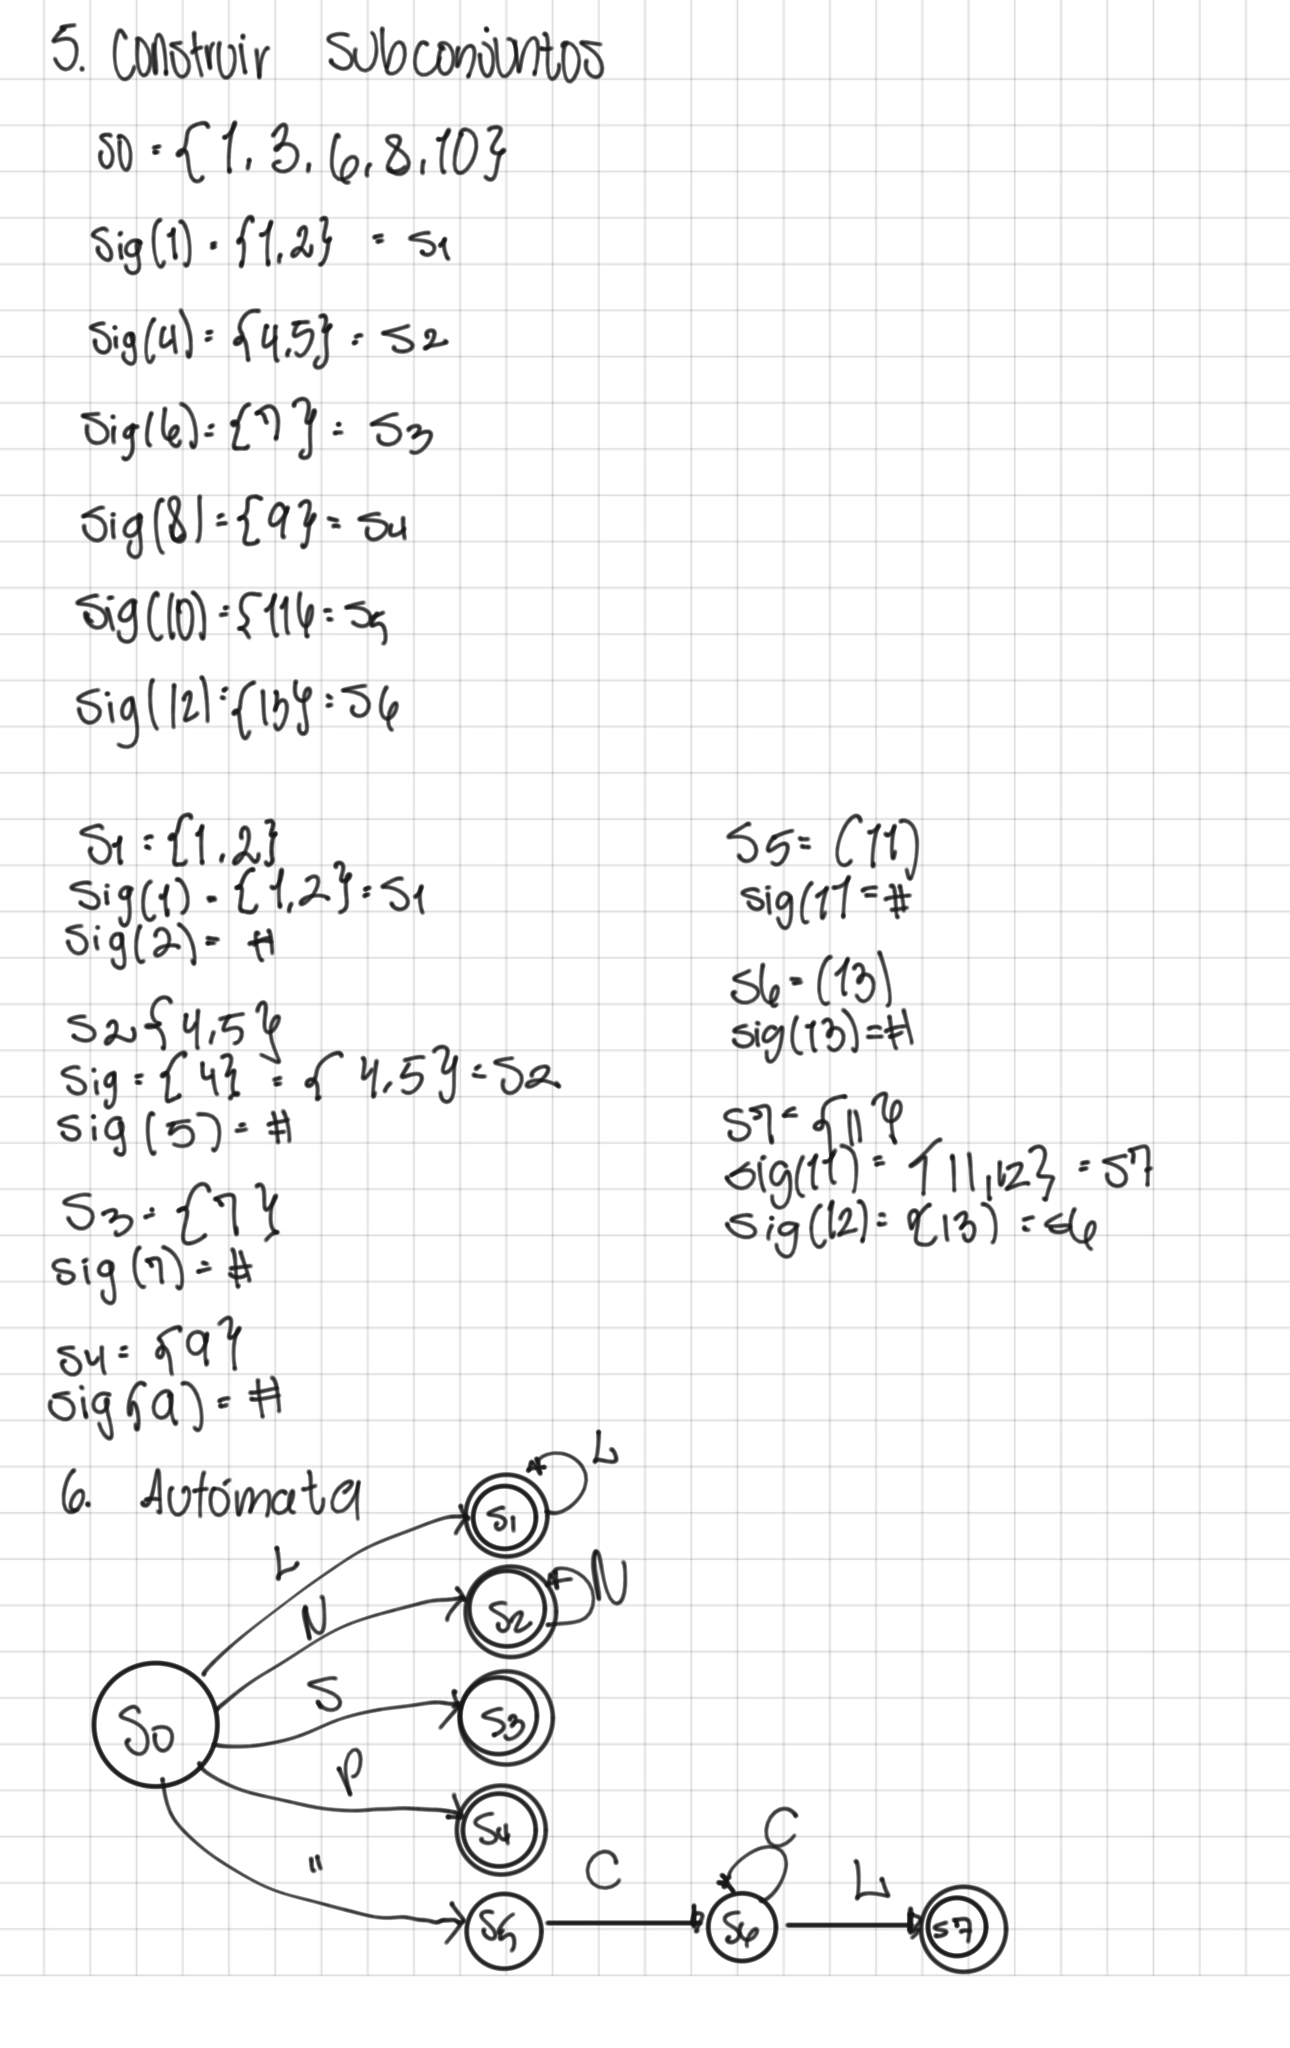 5. Construir Subconjuntos
S0 = {1, 3, 6, 8, 10}
Sig(1) = {1,2} = S1
Sig(4) = {4,5} = S2
Sig(6) = {7} = S3
Sig(8) = {9} = S4
Sig(10) = {11} = S5
Sig(12) = {13} = S6
S1 = {1,2}
Sig(1) = {1,2} = S1
Sig(2) = #
S2 {4,5}
Sig = {4} = {4,5} = S2
Sig(5) = #
S3 = {7}
Sig(7) = #
S4 = {9}
Sig{9) = #
S5 = (11)
Sig(11 = #
S6 = (13)
Sig(13) = #
S7 = {11}
Sig(11) = {11,12} = S7
Sig(12) = {13) = S6
6. Autómata
L
S1
L
N
S2
N
S0
S
S3
P
S4
"
S5
C
S6
C
L
S7